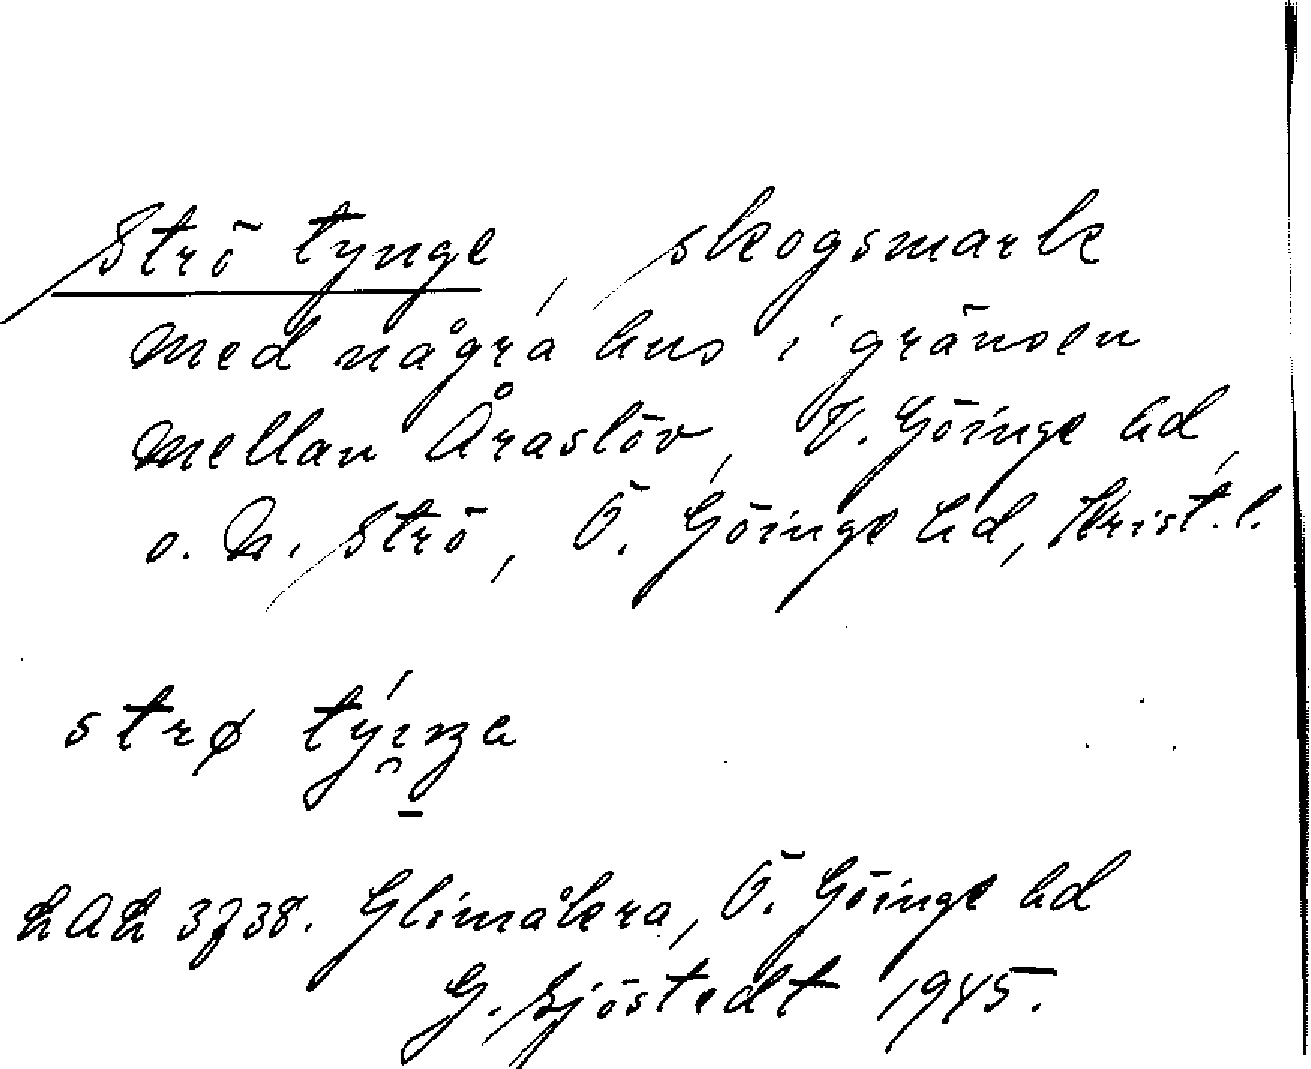 Strö tynge, skogsmark
med några hus i gränsen
mellan Åraslöv, V. Göinge hd,
o. N. Strö, Ö. Göinge hd, Krist. l.
strø
LAL 3738. Glimåkra, Ö. Göinge hd
G. Sjöstedt 1945.